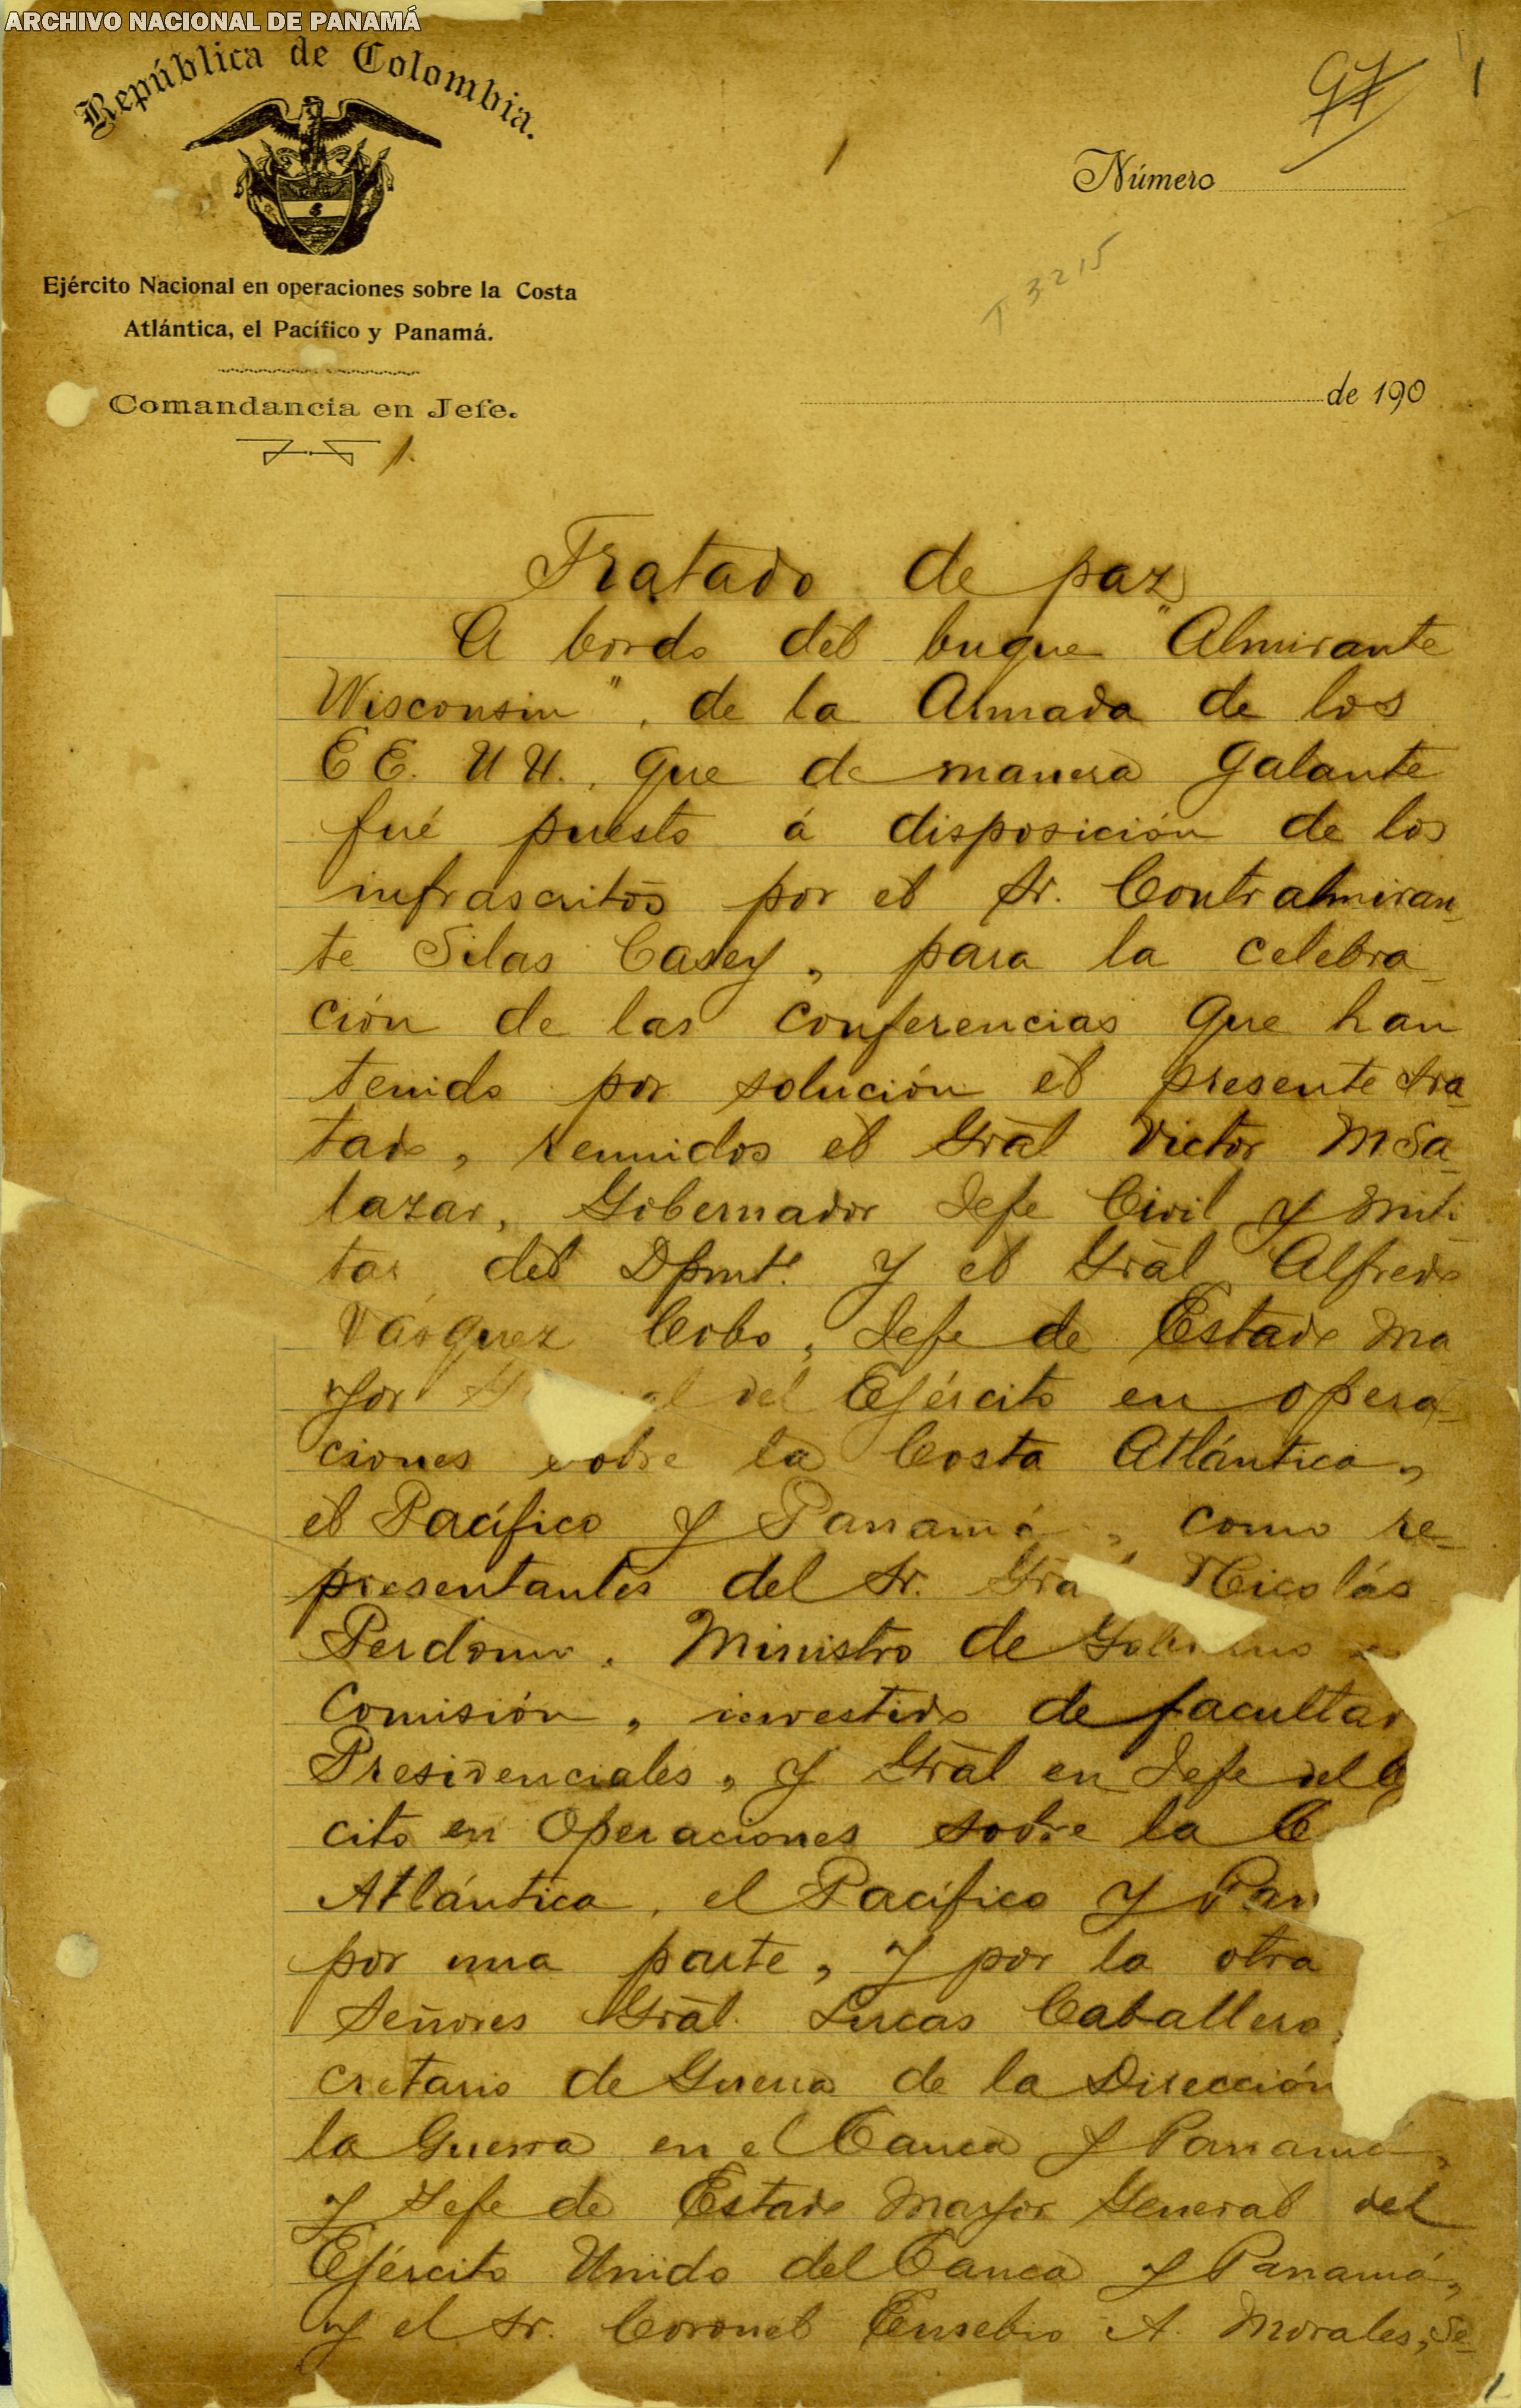 ARCHIVO NACIONAL DE PANAMÁ
República de Colombia.
97
1
1
Número
T 3215
Ejército Nacional en operaciones sobre la Costa
Atlántica, el Pacífico y Panamá.
Comandancia en Jefe.
de 190
1.
Tratado de paz
A bordo del buque "Almirante
Wisconsin", de la Armada de los
EE. UU., que de manera galante
fué puesto á disposición de los
infrascritos por el Sr. Contralmiran-
te Silas Casey, para la celebra-
ción de las conferencias que han
tenido por solución el presente tra-
tado, reunidos el Grāl Victor M Sa-
lazar, Gobernador Jefe Civil y Mili-
tar del Dpmtº y el Grāl Alfredo
Vásquez Cobo, Jefe de Estado Ma
yor G al del Ejército en opera-
ciones sobre la Costa Atlántica,
el Pacífico y Panamá, como re-
presentantes del Sr. Gra Nicolás
Perdomo, Ministro de Gobierno
Comisión, investido de facultad
Presidenciales, y Grāl en Jefe del E
cito en Operaciones sobre la C
Atlántica, el Pacífico y Pan
por una parte, y por la otra
Señores Grāl. Lucas Caballero
cretario de Guerra de la Dirección
la Guerra en el Cauca y Panamá,
y Jefe de Estado Mayor General del
Ejército Unido del Cauca y Panamá,
y el Sr. Coronel Eusebio A. Morales, Se-
1